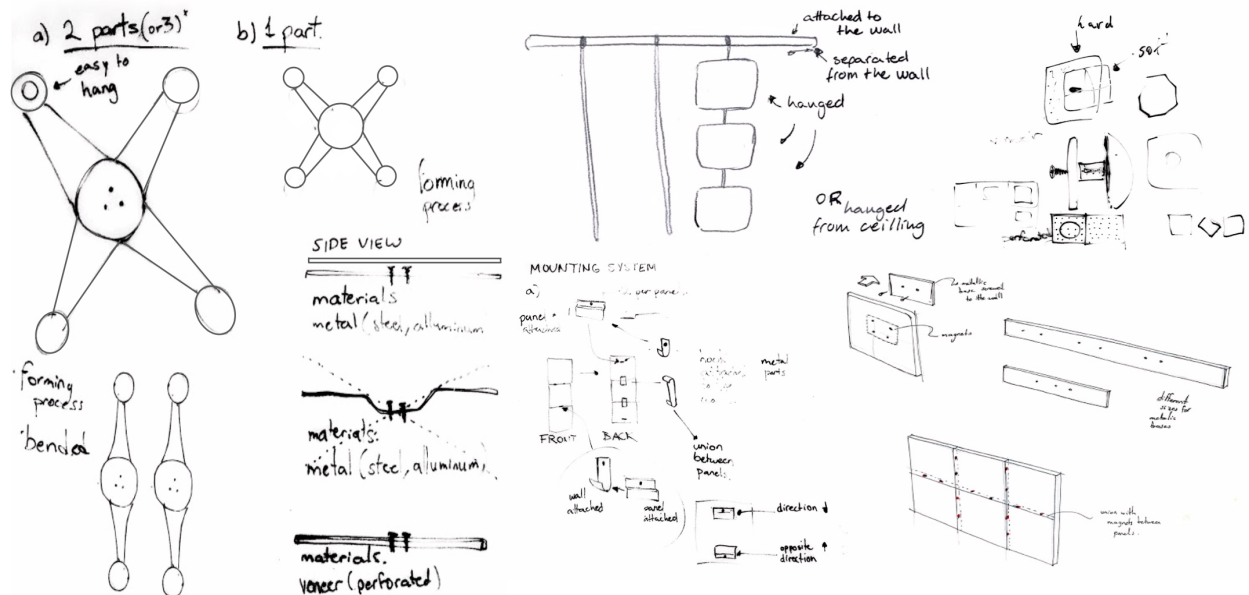 a) 2 parts,(or3)*
easy to
hang
forming
process
bended
b) 1 part.
forming
process
SIDE VIEW
materials
metal (steel, alluminum
materials:
metal (steel, aluminum,
materials.
veneer (perforated)
attached to
the wall
separated
from the wall
hanged
OR hanged
from ceilling
MOUNTING SYSTEM
a)
panel
metal
parts
FRONT
BACK
union
between
panels.
wall
attached
panel
attached
direction
opposite
direction
hard
perforated
metallic
base
to the wall
magnets
different
sizes for
metalic
bases
union with
magnets between
panels.